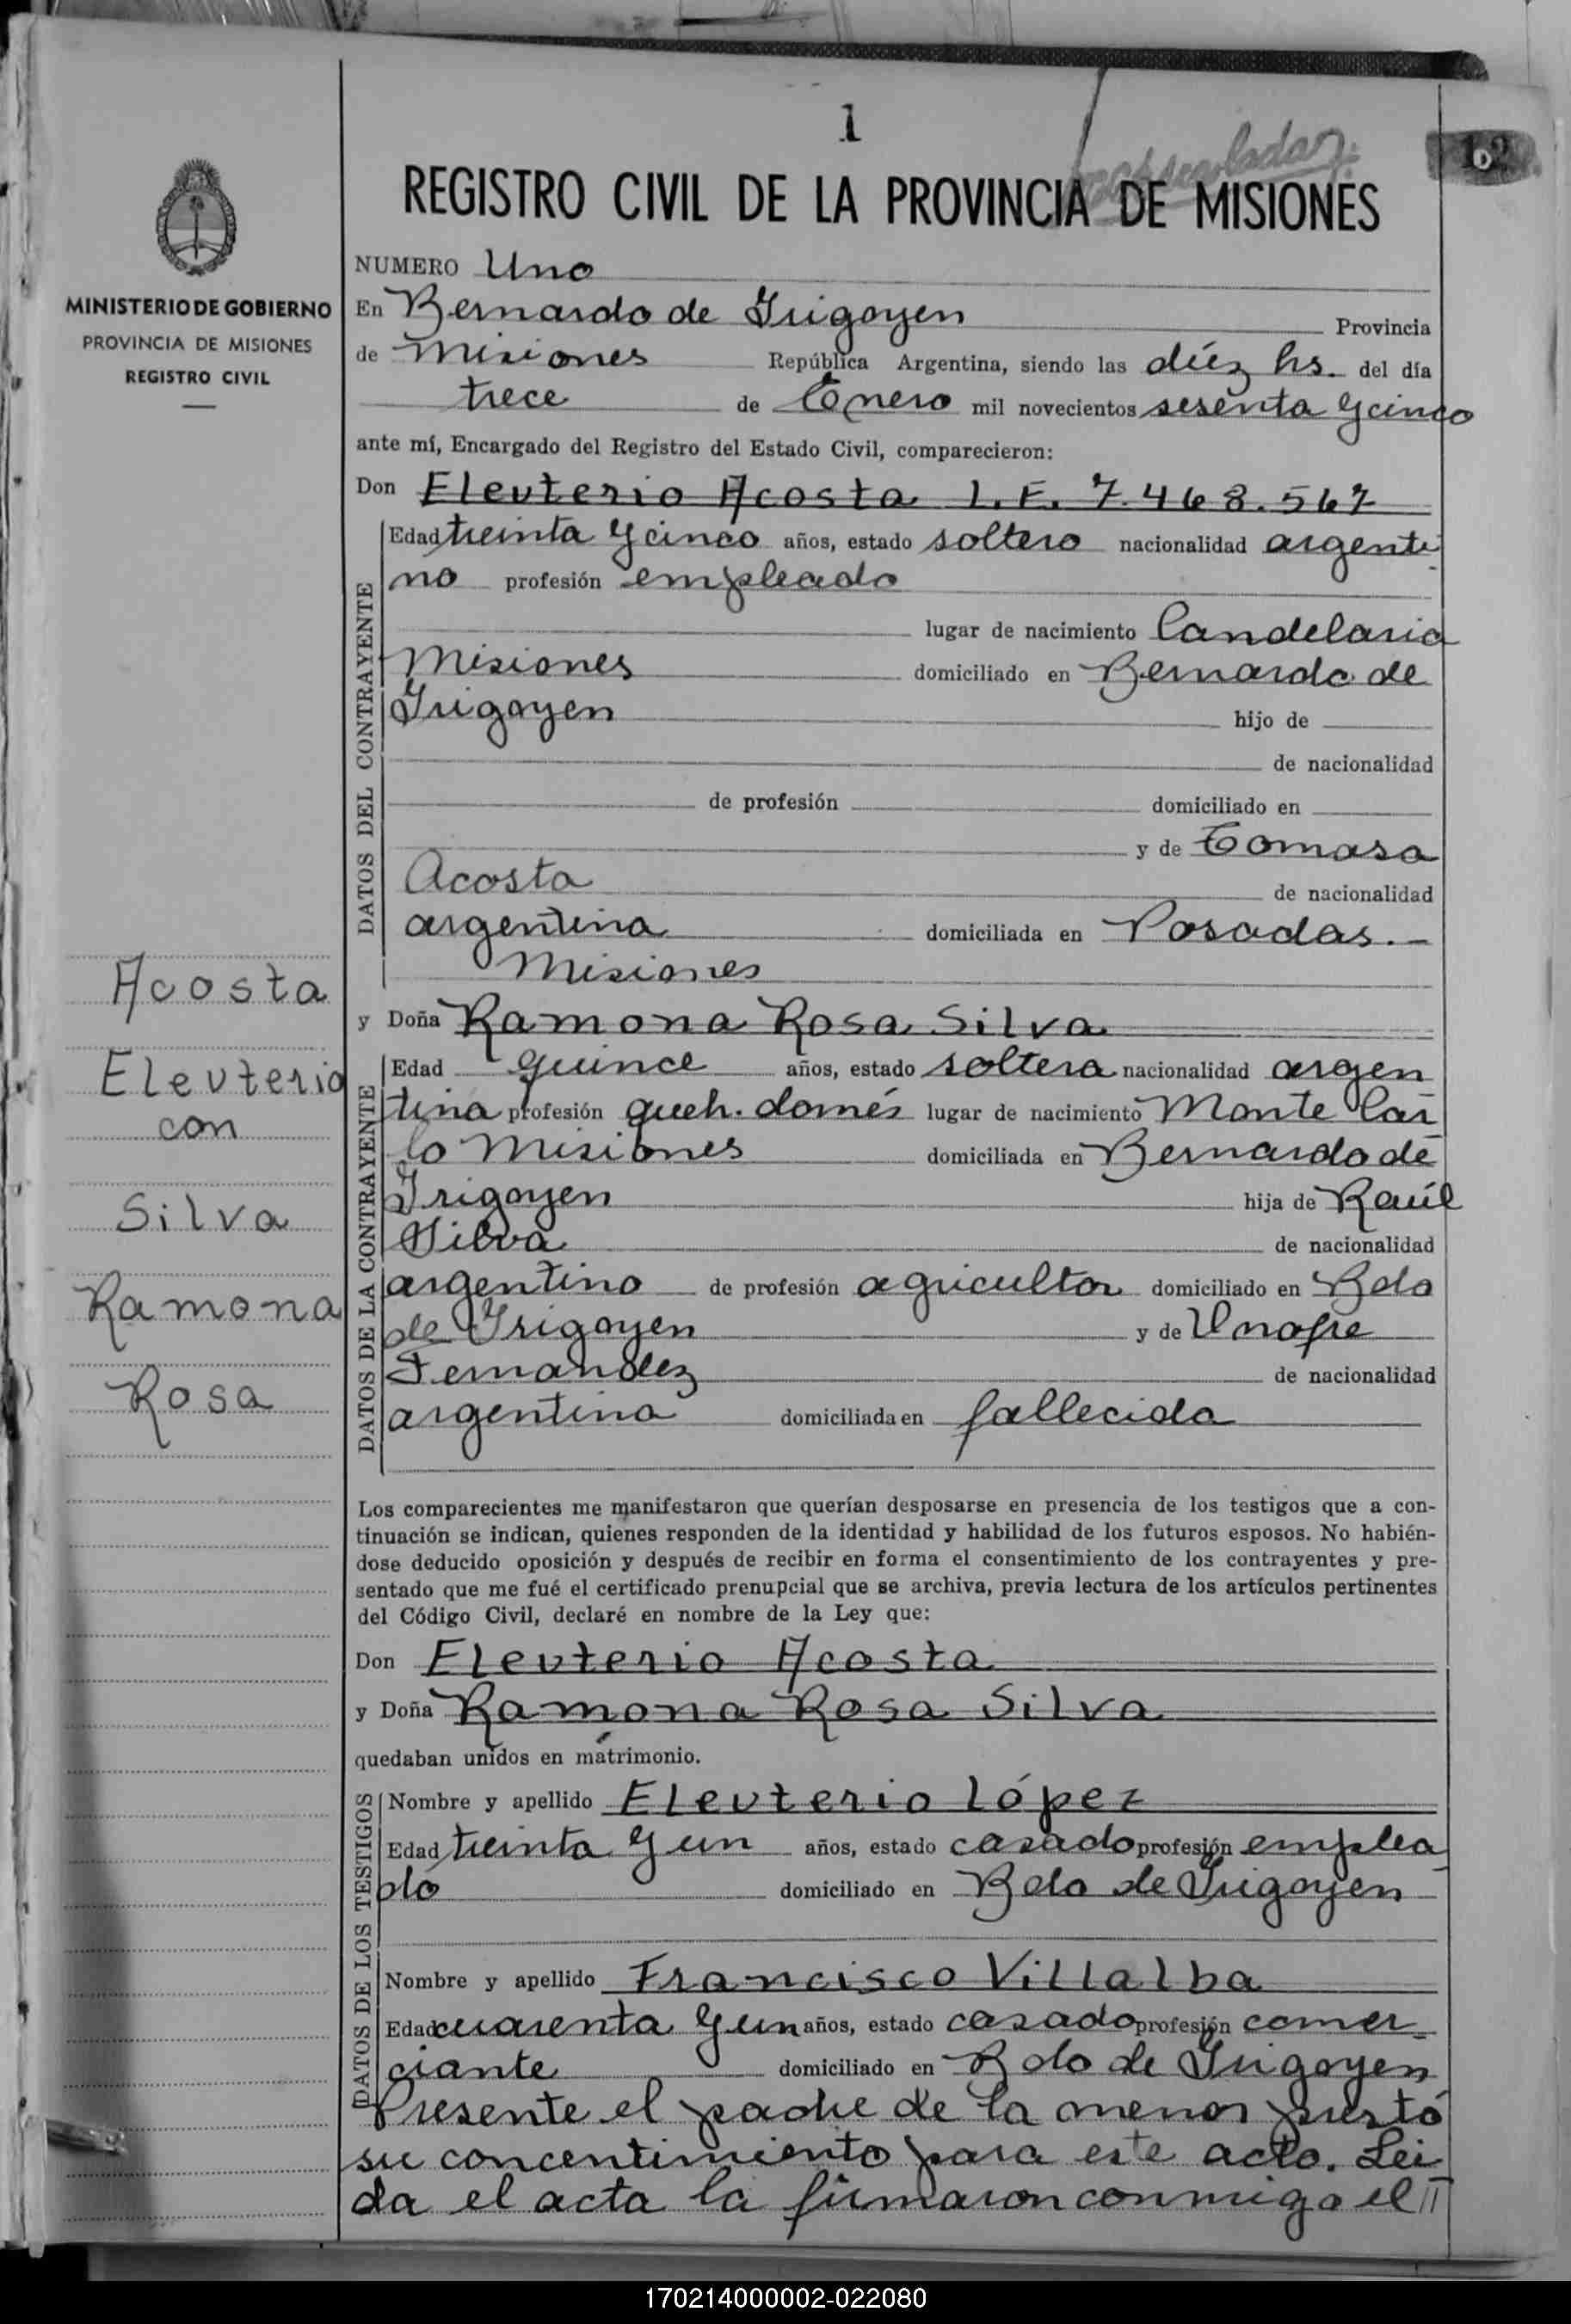 1
REGISTRO CIVIL DE LA PROVINCIA DE MISIONES
MINISTERIO DE GOBIERNO
PROVINCIA DE MISIONES
REGISTRO CIVIL
NUMERO Uno
En Bernardo de Irigoyen Provincia
de Misiones República Argentina, siendo las diéz hs. del día
trece de Enero mil novecientos sesenta y cinco
ante mí, Encargado del Registro del Estado Civil, comparecieron:
Don Eleuterio Acosta L.E. 7.468.567
DATOS DEL CONTRAYENTE
Edad treinta y cinco años, estado soltero nacionalidad argenti
no profesión empleado
lugar de nacimiento Candelaria
Misiones domiciliado en Bernardo de
Irigoyen hijo de
de nacionalidad
de profesión domiciliado en
y de Tomasa
Acosta de nacionalidad
argentina domiciliada en Posadas.-
Misiones
y Doña Ramona Rosa Silva
DATOS DE LA CONTRAYENTE
Edad quince años, estado soltera nacionalidad argen
tina profesión queh. domés lugar de nacimiento Monte Car
lo Misiones domiciliada en Bernardo de
Irigoyen hija de Raúl
Silva de nacionalidad
argentino de profesión agricultor domiciliado en Bdo
de Irigoyen y de Unofre
Fernandez de nacionalidad
argentina domiciliada en fallecida
Acosta
Eleuterio
con
Silva
Ramona
Rosa
Los comparecientes me manifestaron que querían desposarse en presencia de los testigos que a con-
tinuación se indican, quienes responden de la identidad y habilidad de los futuros esposos. No habién-
dose deducido oposición y después de recibir en forma el consentimiento de los contrayentes y pre-
sentado que me fué el certificado prenupcial que se archiva, previa lectura de los artículos pertinentes
del Código Civil, declaré en nombre de la Ley que:
Don Eleuterio Acosta
y Doña Ramona Rosa Silva
quedaban unidos en matrimonio.
DATOS DE LOS TESTIGOS
Nombre y apellido Eleuterio López
Edad treinta y un años, estado casado profesión emplea
do domiciliado en Bdo de Irigoyen
Nombre y apellido Francisco Villalba
Edad cuarenta y un años, estado casado profesión comer
ciante domiciliado en Bdo de Irigoyen
Presente el padre de la menor prestó
su concentimiento para este acto. Lei
da el acta la firmaron conmigo el
170214000002-022080